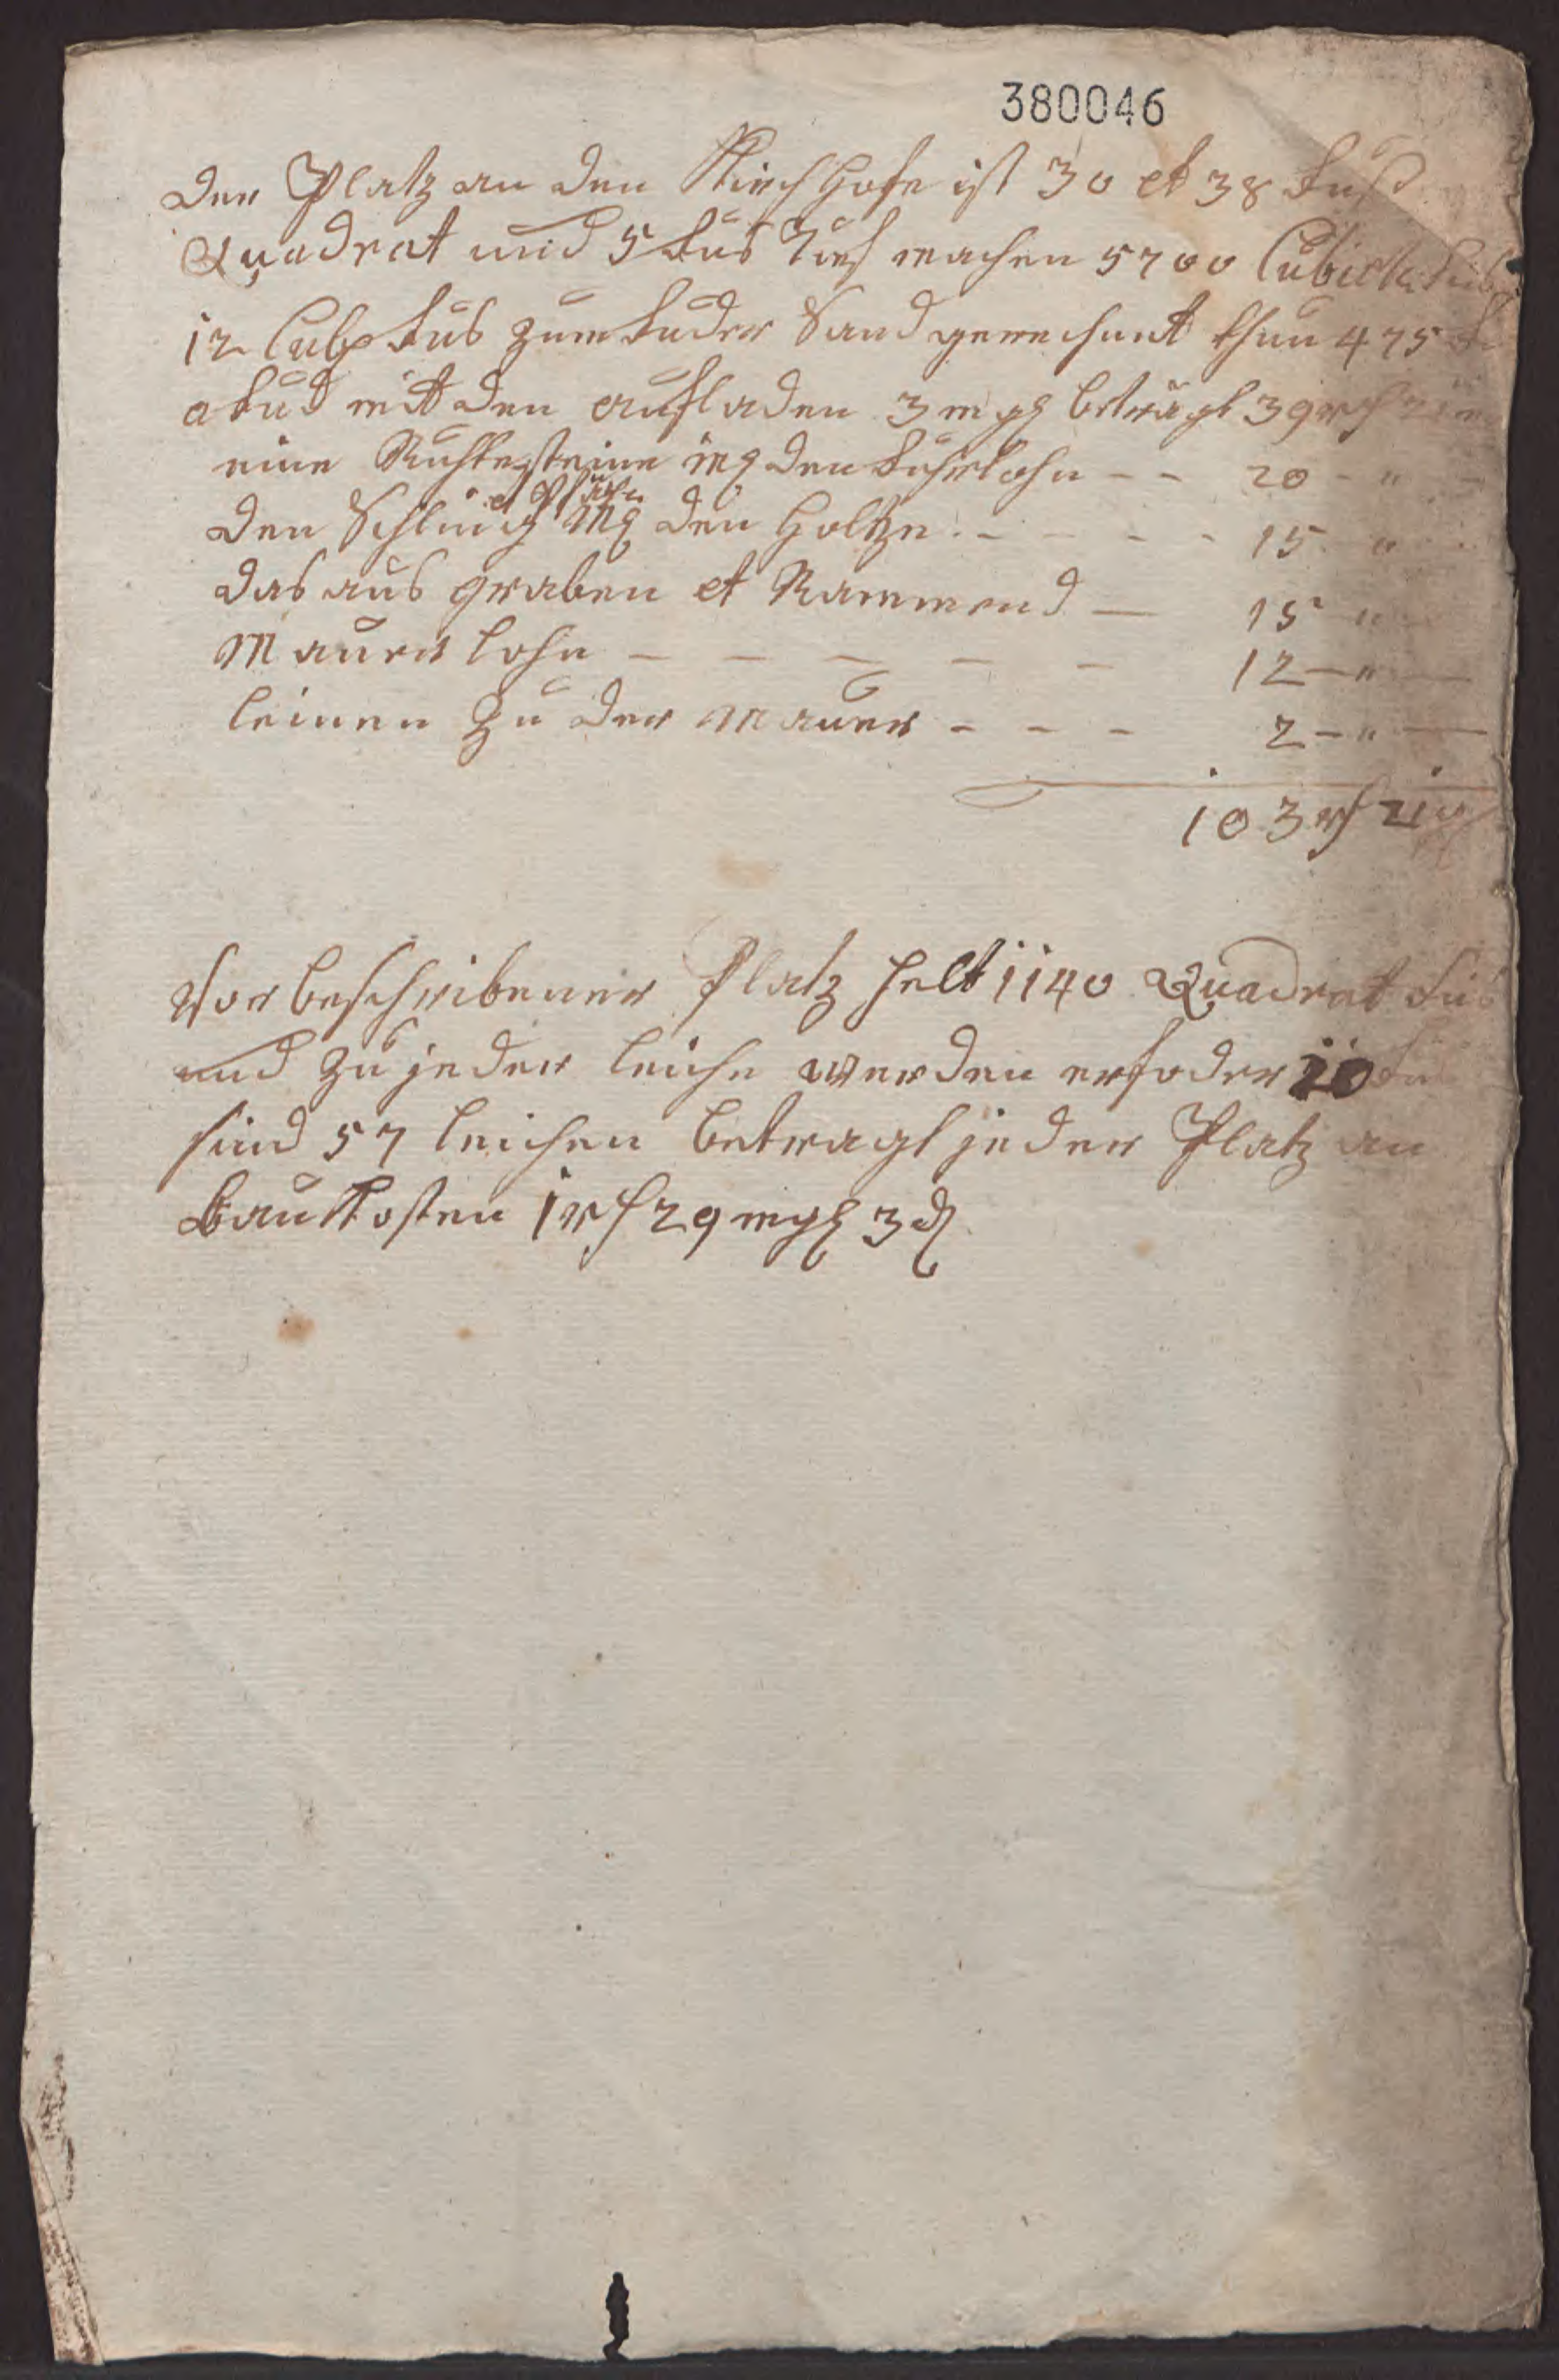 380046
Der Platz an den Kirchhofe ist 30 et 38 Fuß
Quadrat und 5 Fus Tief machen 5700 Cubick Fus
12 Cub Fus zum Fuder Sand gerechnet thun 475 F
a Fud mitt den aufladen 3 mgl beträgt 39 rth 21
eine Ruhte steine inc den Fuhrlohn - - 20 - "
et Pfäle
den Schling inc den Holtze - - - - 15 - "
das aus graben et Rammend — 15 - "
Maurer lohn - - - - - 12 - " -
leimen zu der Mauer - - - 2 - " -
103 rth 21
Vor beschribener Platz helt 1140 Quadrat Fus
und zu jeder leiche werden erfoder 20 Fus
sind 57 leichen betragt jeder Platz an
baukosten 1 rth 29 mgl 3 d